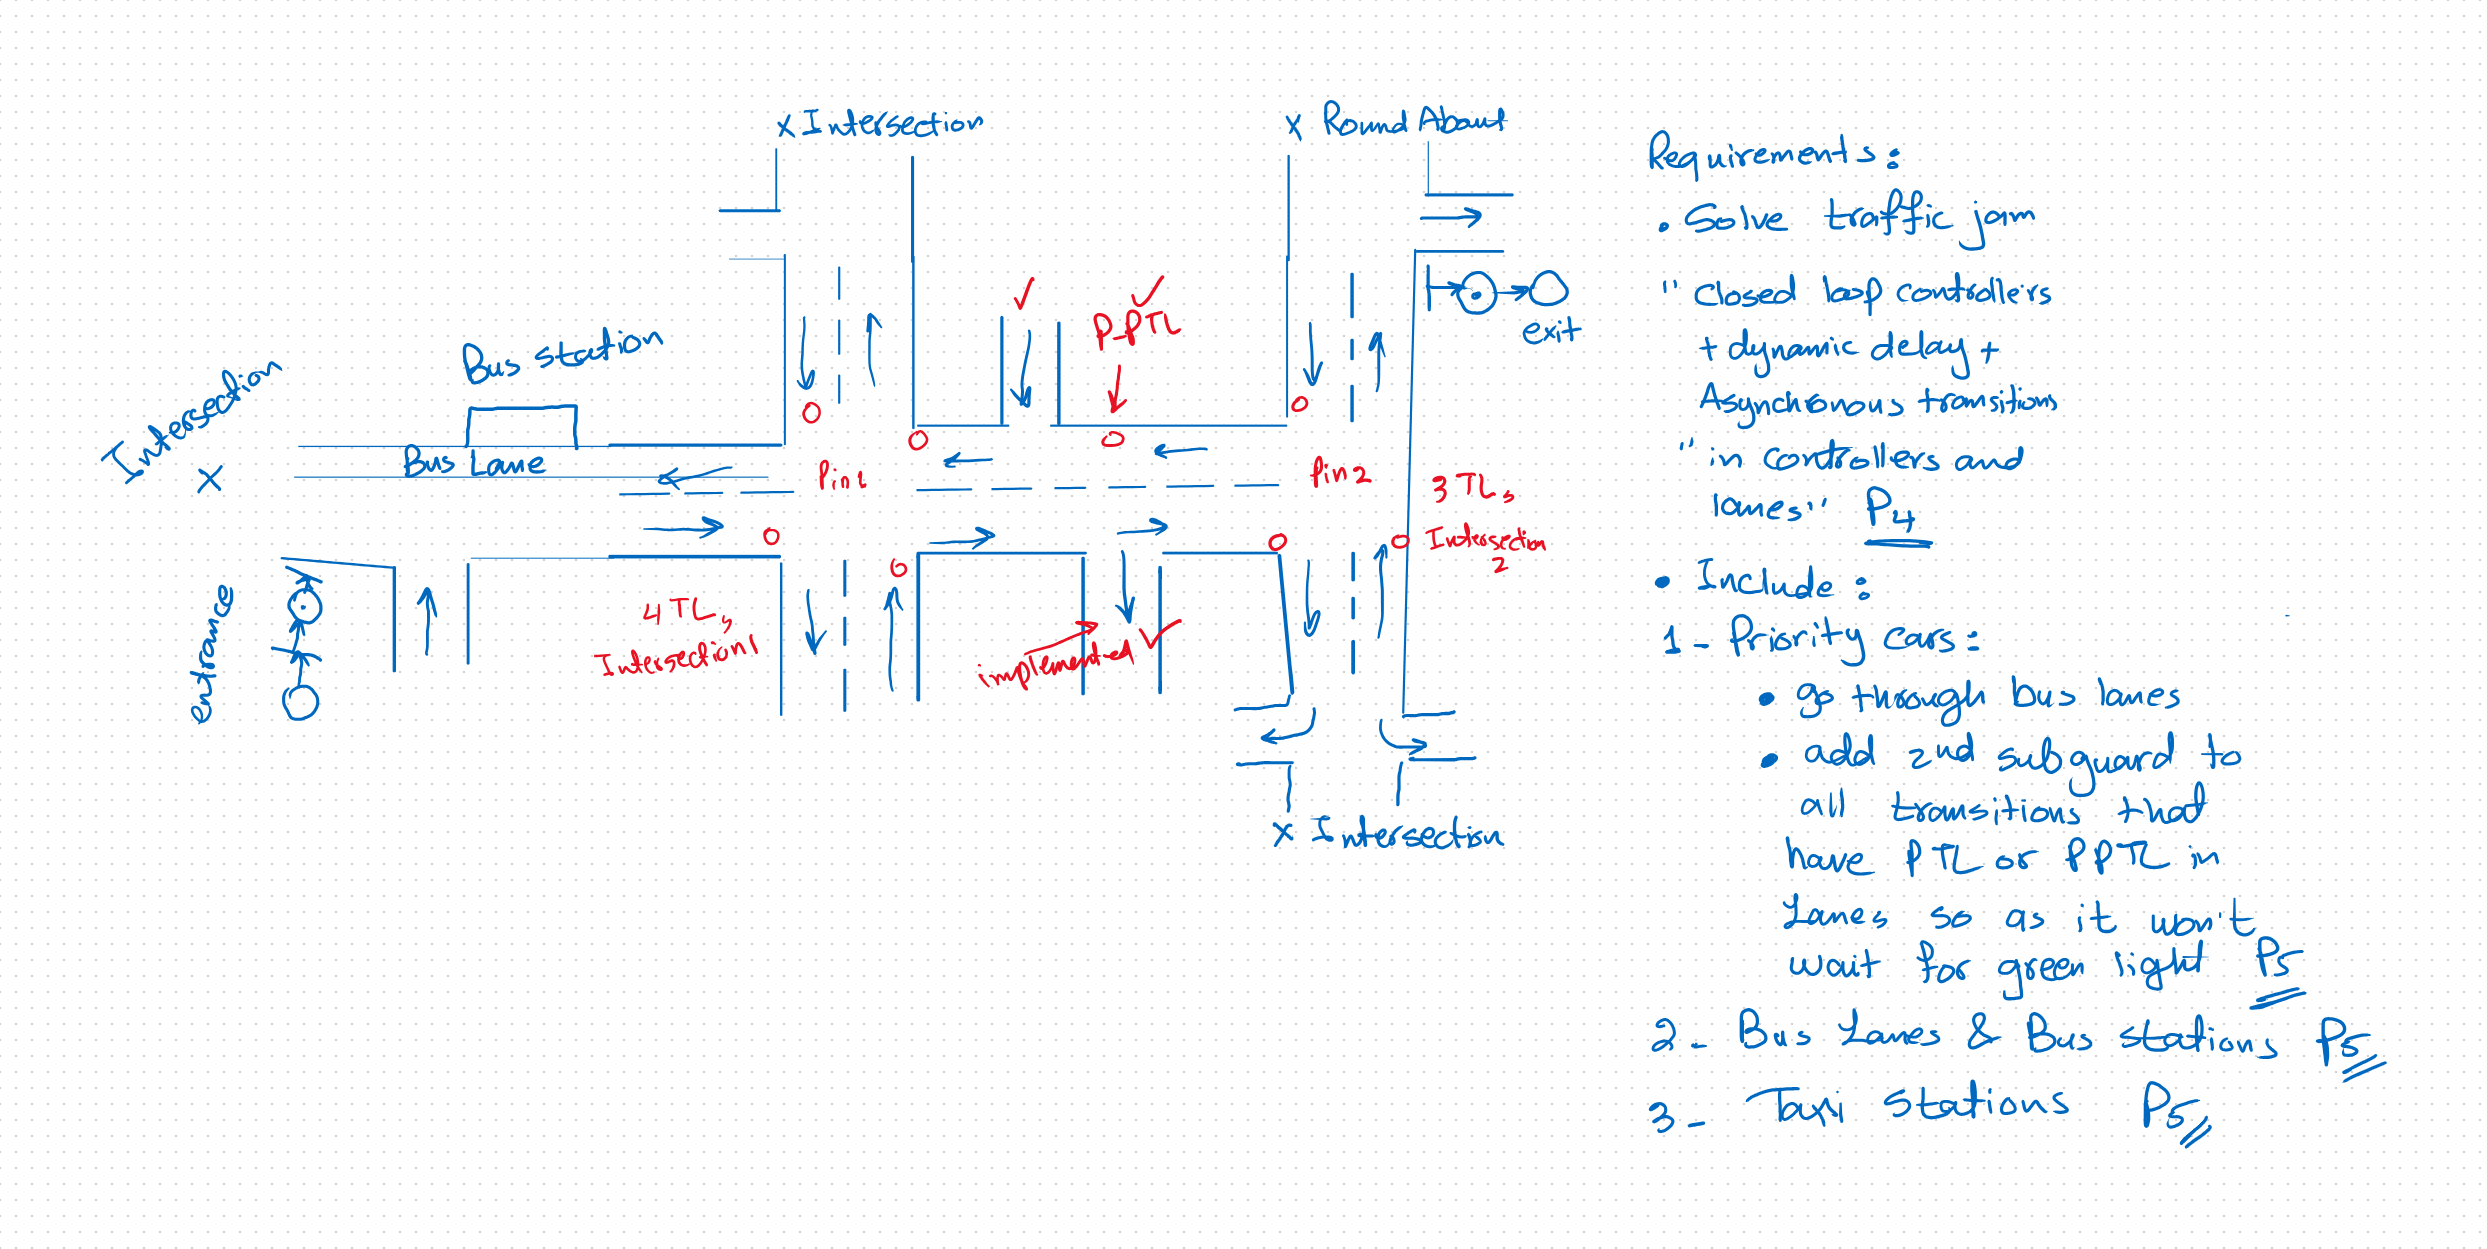 x Intersection
x Round About
Bus station
Intersection
x
Bus Lane
P-PTL
exit
Pin1
Pin2
3 TLs
Intersection
2
entrance
4 TLs
Intersection1
implemented
x Intersection
Requirements:
• Solve traffic jam
" Closed loop controllers
+ dynamic delay +
Asynchronous transitions
" in controllers and
lanes" P4
• Include:
1- Priority cars:
• go through bus lanes
• add 2nd subguard to
all transitions that
have PTL or PPTL in
Lanes so as it won't
wait for green light P5
2- Bus Lanes & Bus stations P5
3- Taxi Stations P5